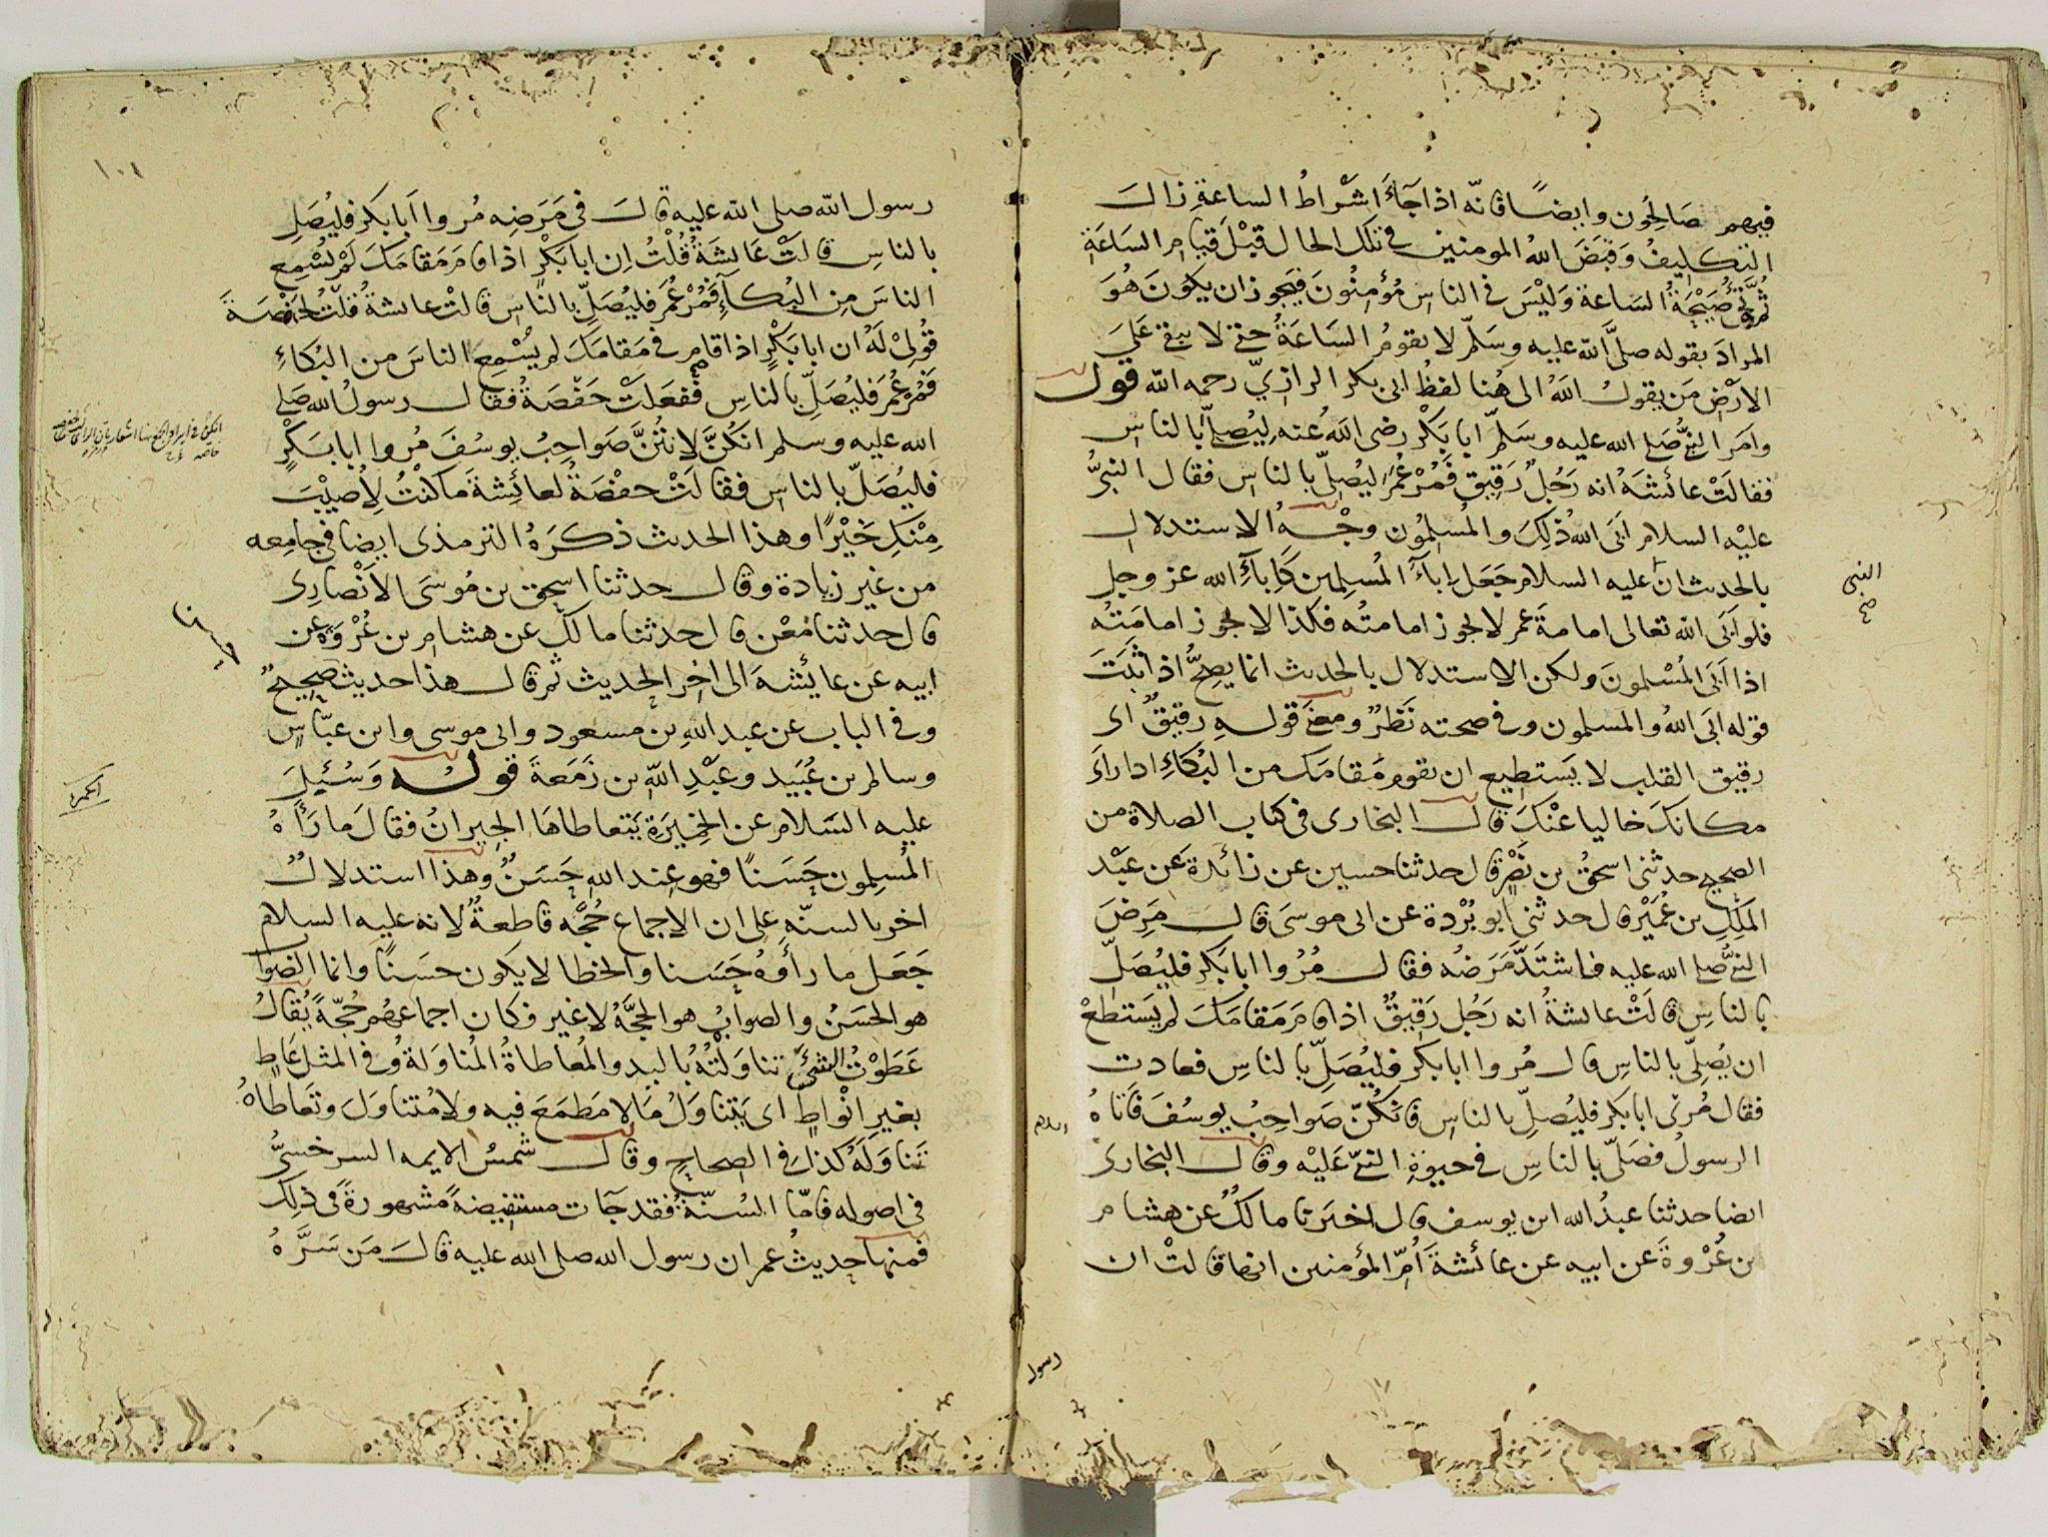 فيهم صَالِحُون وايضًا فانّه اذا جَآءَ اشْراطُ الساعةِ زالَ
التكليفُ وَقبَضَ اللهُ المومنين في تلك الحال قبْلَ قيام السَاعَةِ
ثم تجيُ صَيْحَةُ السَاعة وَلَيْسَ في الناسِ مُؤمِنُونَ فيَجوز ان يكونَ هُوَ
المرادَ بقوله صلَّى الله عليه وسَلّم لا تقومُ السَاعَةُ حتى لا يبقى عَلَى
الارْضِ مَن يقولُ اللهُ الى هُنا لفظُ ابى بكر الرازيّ رحمه الله قولـه
وامَر النبيُّ صَلى الله عليه وسَلّم ابا بَكْر رضى الله عنه لِيُصلّي بالناسِ
فقالَتْ عائشَةُ انه رَجُلٌ رَقِيقٌ فَمُرْ عُمَر ليُصِلّى بالناسِ فقال النبيُّ
عليْه السلام ابَى اللهُ ذٰلِكَ والمُسلِمُون وجْهُ الاستدلال
بالحديث ان عليه السلام جَعَل اِباءَ المُسلِمين كَاِباءِ الله عز وجل
فلو ابَى الله تعالى امامةَ عمر لا يجوز امامتُه فكذا لا يجوز امامَتُه
اذا اَبَى المُسْلمونَ ولكن الاستدلال بالحديث انما يصِحُّ اذا ثَبَتَ
قوله ابَى اللهُ والمسلمون وفي صحته نَظرٌ ومعنى قولـه رقيقٌ اى
رقيق القلب لا يَستطيع ان يقوم مَقامَك من البُكاءِ اذا رأى
مكانكَ خاليا عنْكَ قالَ البخارى في كتاب الصلاة من
الصحيح حدثنى اسحقُ بن نَصْرٍ قال حدثنا حسين عن زائدة عَن عَبْد
المَلِكِ بن عُمَيْر قال حدثني ابو بُرْدة عن ابى موسَى قالَ مَرِضَ
النبيُّ صلى الله عليه فاشتَدَّ مَرَضُه فقال مُرُوا ابا بَكر فليُصَلّ
بالناسِ قالَتْ عايشةُ انه رَجُل رَقِيقٌ اذا قام مَقامَكَ لم يَستَطعْ
ان يُصلِّى بالناسِ قال مُروا ابا بكر فليُصَلِّ بالناسِ فعادت
فقال مُرى ابا بَكر فليُصلِّ بالناس فانكُنّ صَواحِبُ يوسُفَ فَاتاهُ
الرسولُ فصَلّى بالناسِ في حيوةِ النبيّ عَليْه وقالَ البخارى
ايضا حدثنا عبدُ الله ابن يوسف قال اخبَرنا مالكٌ عن هشام
بن عُرْوةَ عن ابيه عن عائشةَ اُمّ المؤمنين انها قالتْ ان
النبى
صح
السلام
رسول
١٠١
رسول الله صلى الله عليه قالَ في مَرَضِه مُروا اَبا بَكر فليُصَلِ
بالناسِ قالَتْ عَايشَةُ قُلْتُ اِن ابا بَكْرٍ اذا قام مَقامَكَ لَمْ يُسْمِعِ
الناسَ مِن البُكآءِ فَمُرْ عُمَر فليُصَلِّ بالناس قالتْ عايشةُ فقلْتُ لحَفْصَةَ
قُولِىْ لَهُ ان ابا بَكْرٍ اذا قام في مَقامَكَ لم يُسْمِعِ الناسَ من البُكاءِ
فَمُرْ عُمَر فليُصَلِّ بالناسِ ففَعَلَتْ حَفْصَةُ فقال رسولُ الله صَلى
الله عليه وسلم انكُنَّ لانتُنَّ صَواحِبُ يوسُفَ مُروا ابا بَكْرٍ
فليُصَلّ بالناسِ فقالَتْ حفْصَةُ لعائِشةَ ما كنْتُ لِاُصِيْبَ
مِنْكِ خَيْرًا وهذا الحديث ذكرَهُ الترمذى ايضا في جامِعه
من غير زيادة وقال حدثنا اسحق بن مُوسَى الاَنْصارِى
قال حدثنا مُعْن قال حدثنا مالكٌ عن هشام بن عُرْوَةَ عن
ابيه عن عايُشةَ الى اخِر الحديث ثم قال هذا حديث صحيحٌ
وفي الباب عن عبد اللهِ بن مسعود وابى موسى وابن عبّاسٍ
وسالم بن عُبَيد وعَبْدِ اللهِ بن زَمَعةَ قولـُـه وَسُئِلَ
عليه السَلام عن الخمِيْرَةِ يَتعاطاهَا الجِيرانُ فقالَ ما رَأهُ
المُسلِمون حَسَنًا فهو عِند اللهِ حَسَنٌ وهذا استدلالٌ
اخر بالسنّه على ان الاجماع حُجَّه قاطعةٌ لانه عليه السلام
جَعَل ما رأوهُ حَسَنا والخطا لا يكون حسَنًا وانما الصَوابُ
هو الحسَنُ والصوابُ هو الحجَّهُ لا غير فكان اجماعهُم حُجّةً يُقالُ
عَطَوْتُ الشئَ تناوَلْتُهُ باليدِ والمُعاطاةُ المُناوَلةُ وفي المثل عَاطٍ
بغيرِ اَنْواطٍ اى يَتناوَلُ مَا لا مَطمَعَ فيه ولا مُتناوَلَ وتَعاطاهُ
تَناوَلَهُ كذلك في الصحاحِ وقال شمسُ الايمه السرخسىُّ
في اصوله فامّا السُنّةُ فقد جآءت مستفيضةً مشهورةً في ذلك
فمنها حديثُ عمر ان رسول الله صلى الله عليه قالَ مَن سَرَّهُ